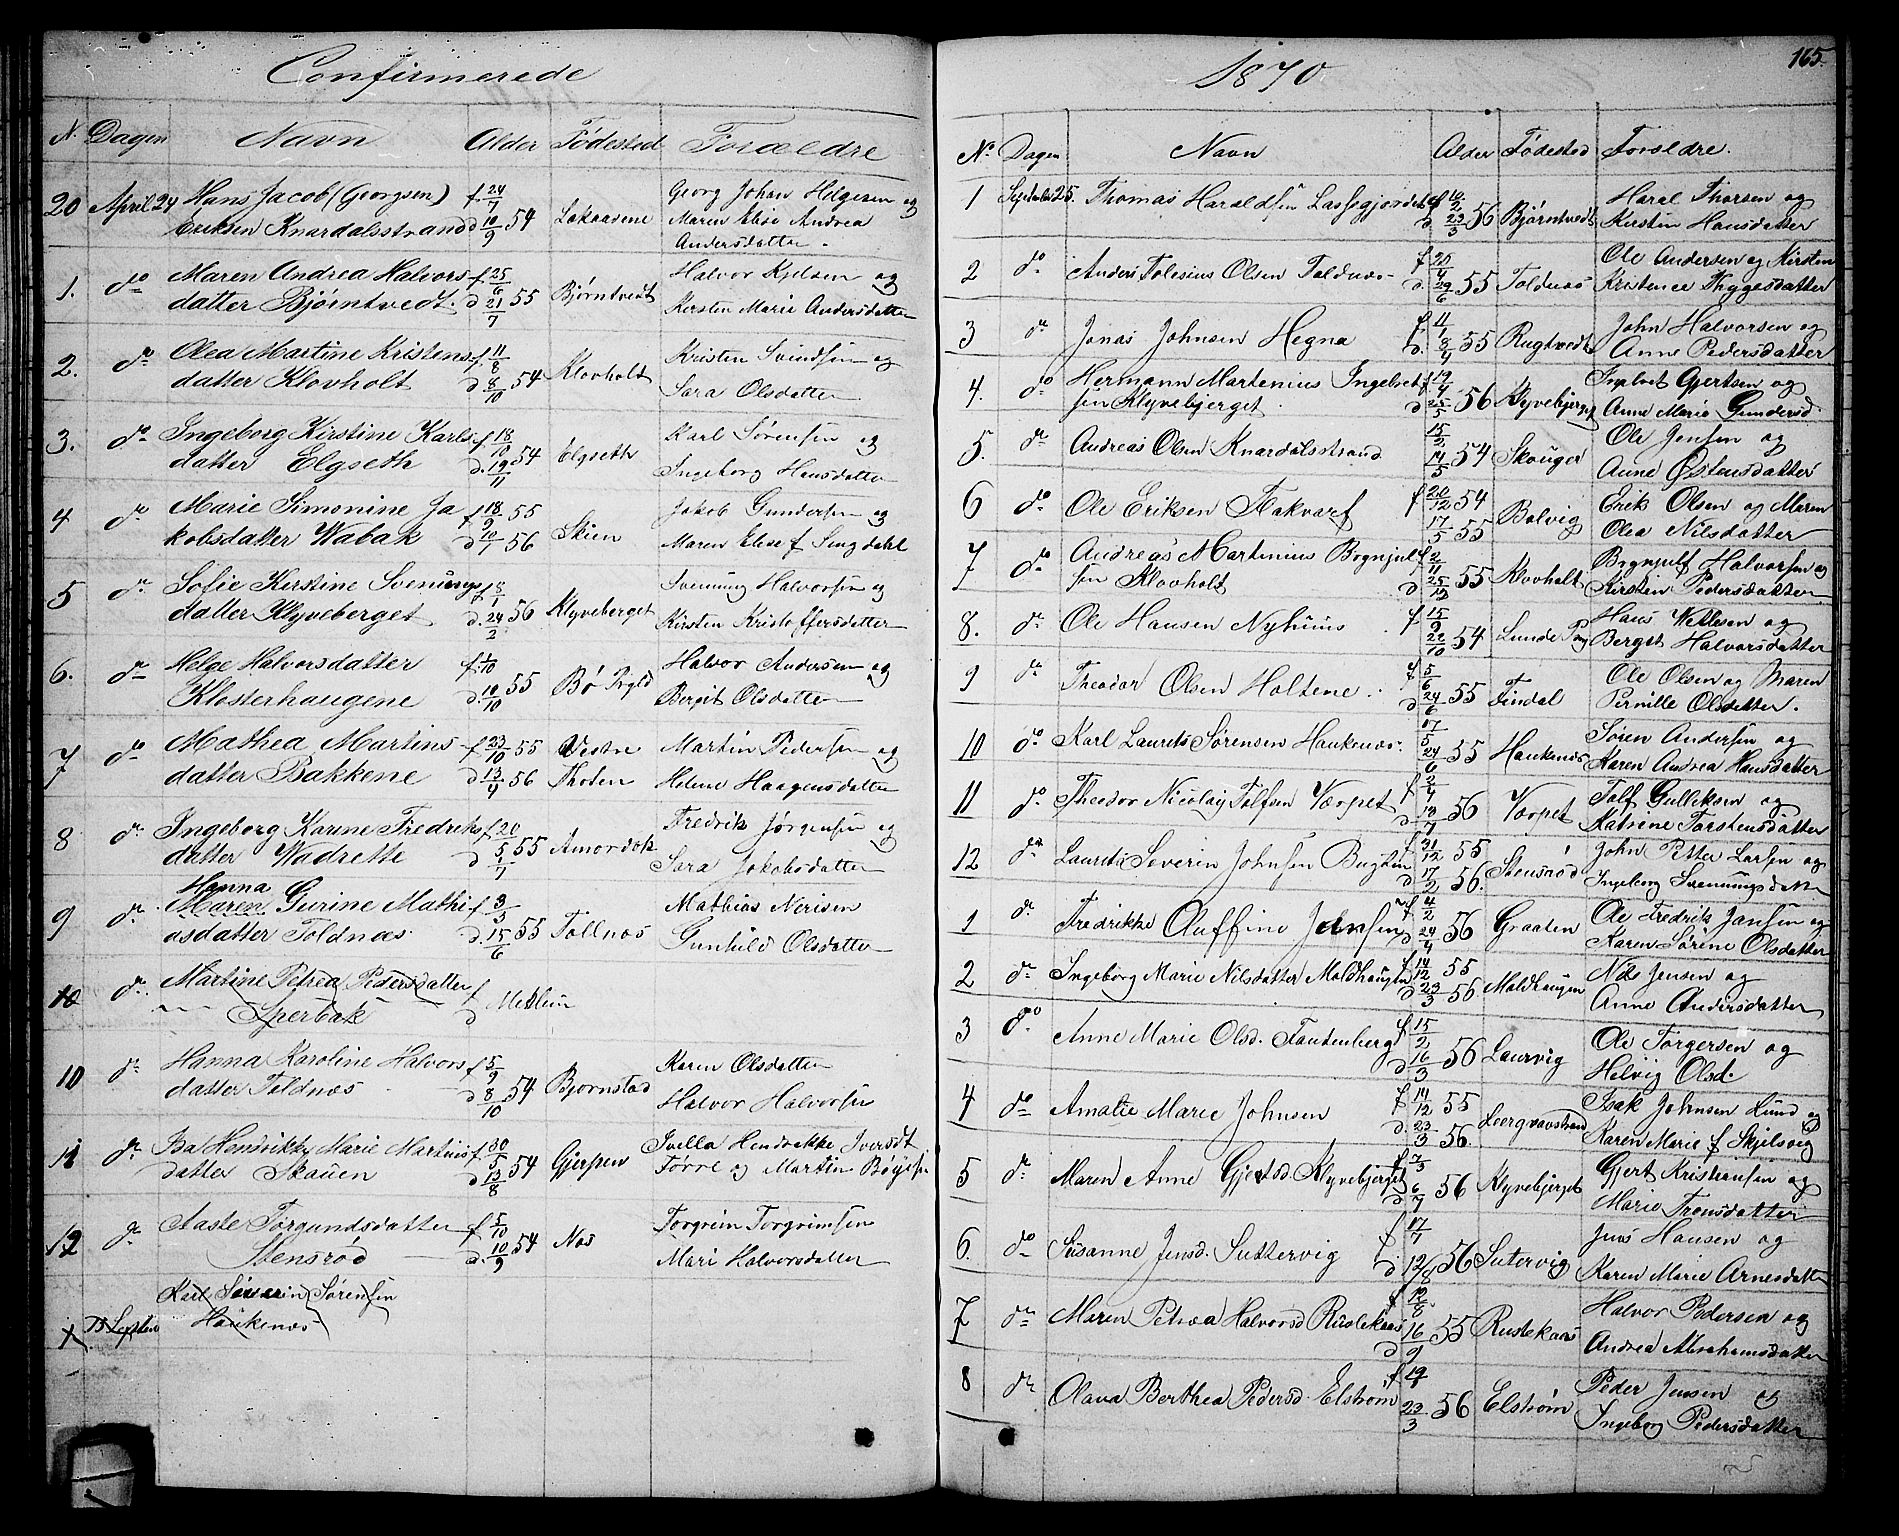 Confirmerede
N. Dagen Navn Alder Fødested Forældre
20 April 24 Hans Jacob (Georgsen) f. 24/7 Georg Johan Helgesen og
Eriksen Knardalsstrand d 10/9 54 Maren Elise Andrea
Andersdatter
1. do Maren Andrea Halvors f 25/6 Halvor Kjelsen og
datter Bjørntvedt. d 21/7 55 Bjørntvedt Kersten Marie Andersdatter
2. do Olea Martine Kristens f. 11/8 Kristen Svindsen og
datter Klovholt d 8/10 54 Klovholt Sara Olsdatter
3. do Ingeborg Kirstine Karls f 18/10 Karl Sørensen og
datter Elgseth d. 19/11 54 Elgseth Ingeborg Hansdatter
4 do Marie Simonine Ja f 18/9 55 Jakob Gundersen og
kobsdatter Wabak d 10/1 56 Skien Maren Elise f Singdahl
5 do Sofie Kirstine Svenungs f 8/1 Svenung Halvorsen og
datter Klyveberget d. 24/2 56 Klyveberget Kirsten Kristoffersdatter
6. do Helge Halvorsdatter f. 1/10 Halvor Andersen og
Klosterhaugene d. 10/10 55 Bø Prgld Bergit Olsdatter
7 do Mathea Martins f 23/10 55 Vestre Martin Pedersen og
datter Bakkene d 13/4 56 Thoten Helene Haagensdatter
8 do Ingeborg Karine Fredriks f 20/5 Fredrik Jørgensen og
datter Wadrette d /7 55 Sara Jakobsdatter
Hanna
9 do Maren Gurine Mathi f 3/3 Mathias Nerisen
asdatter Toldnæs d. 15/6 55 Tollnæs Gunhild Olsdatter
10 do Martine Petrea Pedersdatter f
Sperbak d
10 do Hanna Karoline Halvors f 5/9 Karen Olsdatter
datter Toldnæs d 8/10 54 Bjørnstad Halvor Halvorsen
11 do Isa Hendrikke Marie Martins f 30/5 Hendrikke Iversdt
datter Skauen d 13/8 54 Gjerpen og Martin
12 do Aaste Torgundsdatter f 5/10 Torgrim Torgrimsen
Stensrød d. 10/9 54 Næs Mari Halvorsdatter
Karl Severin Sørensen
Haukenæs
1870 165.
No. Dagen Navn Alder Fødested Foreldre.
1 September 25. Thomas Haraldsen Lassegjordet f 10/2 Haral Thorsen og
d 23/3 56 Bjørntvedt Kerstin Hansdatter
2 do. Anders Tolesius Olsen Toldnæs f 20/4 Ole Andersen og Kirsten
d. 29/6 55 Toldnæs Kristence Thygesdatter
3 do Jonas Johnsen Hegna f. 11/1 John Halvorsen og
d. 8/4 55 Rugtvedt Anne Pedersdatter
4. do Hermann Martenius Ingelvet f. 19/4 Ingelvet Gjertsen og
sen Klyvebjerget d 25/5 56 Klyvebjerget Anne Marie Gundersd.
5. do Andreas Olsen Knardalsstrand 15/2 Ole Jensen og
14/5 54 Skouger Anne Østensdatter
6 do. Ole Eriksen Flakvarf f 20/12 54 Erik Olsen og Maren
17/5 55 Bolvig Olea Nilsdatter
7 do. Andreas Martinius Bognjul f 2/11 Bognjulf Halvorsen og
sen Klovholt d 25/12 55 Klovholt Kirstin Pedersdatter
8. do Ole Hansen Nyhuus f 15/9 Hans Vetlesen og
d 22/10 54 Lunde Berget Halvorsdatter
9 do Theodor Olsen Holtene f 5/6 Ole Olsen og Maren
d 24/6 55 Findal Pernille Olsdatter.
10 do Karl Laurits Sørensen Haukenæs. 17/5 Søren Andersen og
24/6 55 Haukenæs Karen Andrea Hansdatter
11 do. Theodor Nicolay Tolfsen Vorpet f 2/4 Tolf Gulliksen og
d 13/7 56 Vorpet Katrine Torstensdatter
12 do Laurits Severin Johnsen f 31/12 55 John Petter Larsen og
d 17/2 56. Stensrød Ingeborg Svenningsdatt
1 do. Fredrikke Auffine Jansen f 4/2 Ole Fredrik Jansen og
d 24/4 56 Graaten Karen Sørine Olsdatter
2 do Ingeborg Marie Nilsdatter Moldhaugen f 14/12 55 Nils Jensen og
d 23/3 56 Moldhaugen Anne Andersdatter
3 do Anne Marie Olsd. Fantenberg f 15/2 Ole Torgersen og
d 16/3 56 Laurvig Helvig Olsd.
4 do Amalie Marie Johnsen f 14/12 55 Isak Johnsen Lund og
d. 23/3 56. Karen Marie f Skjelsvig
5 do Maren Anne Gjertsd. Klyvebjerget f 7/3 Gjert Kristensen og
d 6/7 56 Klyvebjerget Marie Tronsdatter
6. do Susanne Jensd. Suttervig f. 17/7 Jens Hansen og
d. 12/8 56 Sutervig Karen Marie Arnesdatter
7 do Maren Petrea Halvorsd Rustekaas f 12/8 Halvor Pedersen og
d 16/9 55 Rustekaas Andrea Abrahamsdatter
8 do Olava Berthea Pedersd. Elstrøm f 19/ Peder Jensen og
23/3 56 Elstrøm Ingeborg Pedersdatter